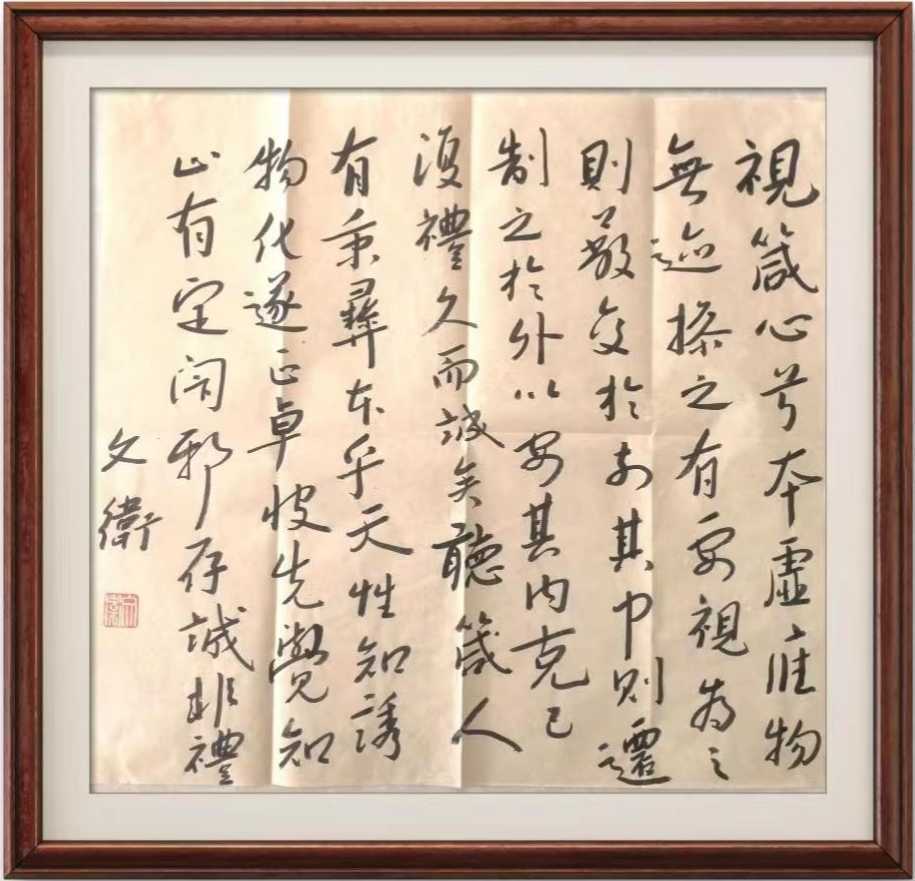 視箴心兮本虛應物
無迹操之有要視為之
則蔽交於前其中則遷
制之於外以安其內克己
復禮久而誠矣聽箴人
有秉彝本乎天性知誘
物化遂正卓彼先覺知
止有定閑邪存誠非禮
文衛